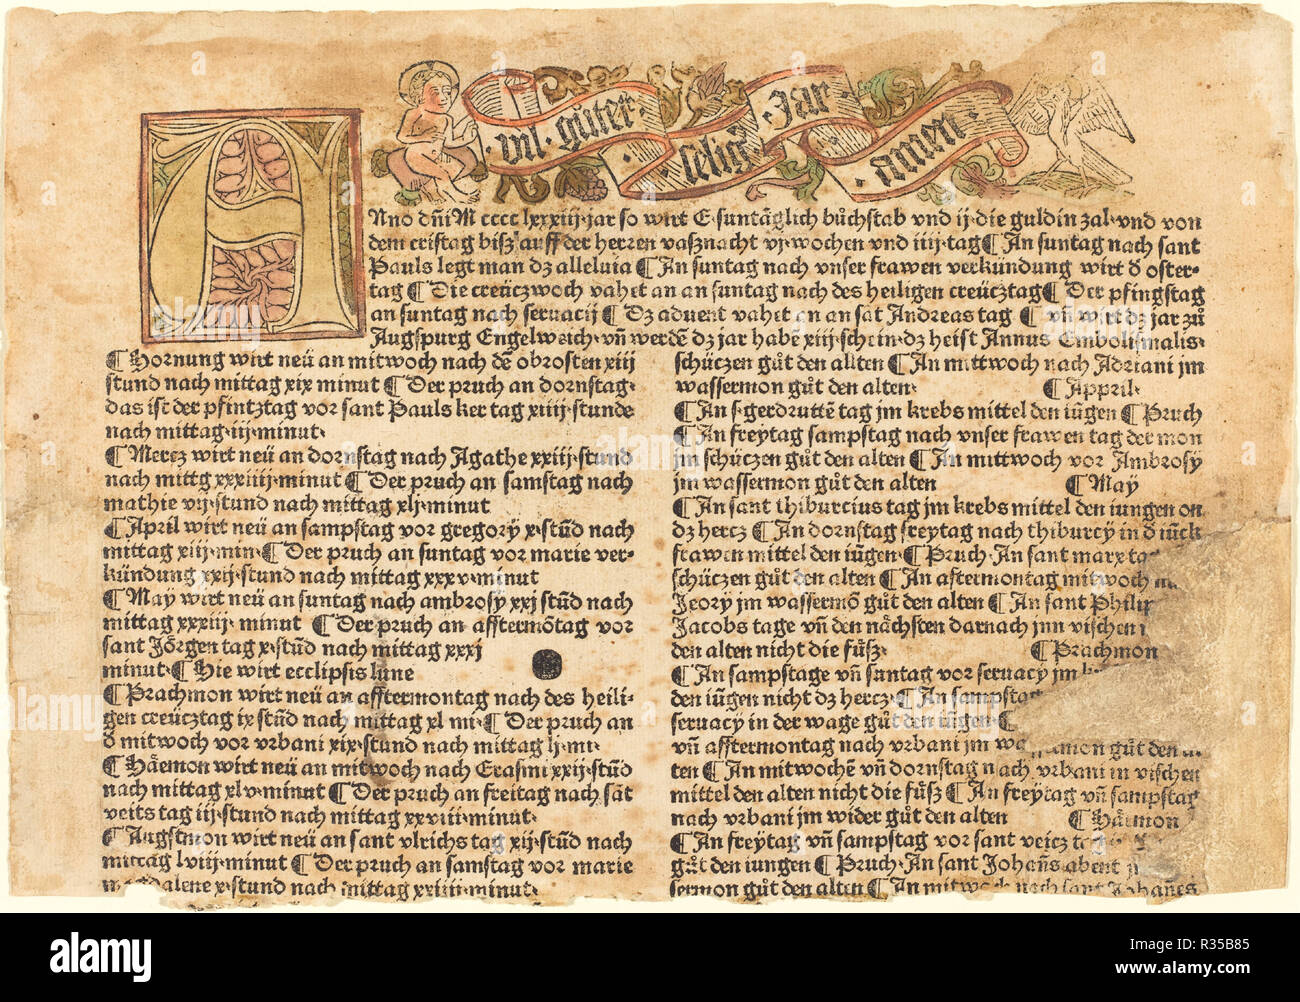 vil · gůter · selig' · Jar · amen ·
ANno dñi M cccc lxxxiij · jar so wirt E · suntäglich bůchstab vnd ij · die guldin zal · vnd von
dem cristag bisz auff der herren vasznacht vj · wochen vnd iiij · tag ¶ An suntag nach sant
Pauls legt man dz alleluia ¶ An suntag nach vnser frawen verkündung wirt d̄ oster⸗
tag ¶ Die creüczwoch vahet an an suntag nach des heiligen creücztag ¶ Der pfingstag
an suntag nach seruacij ¶ Dz aduent vahet an an sāt Andreas tag ¶ vñ wirt dz jar zů
Augspurg Engelweich · vñ werdē dz jar habē xiij · schein · dz heist Annus Embolismalis ·
¶ Hornung wirt neü an mitwoch nach dē obrosten xiij
stund nach mittag xix minut ¶ Der pruch an dornstag ·
das ist der pfintztag vor sant Pauls ker tag xiiij · stunde
nach mittag · iij · minut ·
¶ Mercz wirt neü an dornstag nach Agathe xxiij · stund
nach mittg xxxiiij · minut ¶ Der pruch an samstag nach
mathie vij · stund nach mittag xlj · minut
¶ April wirt neü an sampstag vor gregory x · stūd nach
mittag xiij · min · ¶ Der pruch an suntag vor marie ver⸗
kündung xxij · stund nach mittag xxxv · minut
¶ May wirt neü an suntag nach ambrosy xxj stūd nach
mittag xxxiij · minut ¶ Der pruch an afftermōtag vor
sant Jörgen tag x · stūd nach mittag xxxj
minut · ¶ Hie wirt ecclipsis lune
¶ Prachmon wirt neü an afftermontag nach des heili⸗
gen creücztag ix stūd nach mittag xl mi · ¶ Der pruch an
d̄ mitwoch vor vrbani xix · stund nach mittag lj · mi ·
¶ Häemon wirt neü an mitwoch nach Erasmi xxij · stūd
nach mittag xlv · minut ¶ Der pruch an freitag nach sāt
veits tag iij · stund nach mittag xxviii · minut ·
¶ Augstmon wirt neü an sant vlrichs tag xij · stūd nach
mittag lviij · minut ¶ Der pruch an samstag vor marie
magdalene x · stund nach mittag xxiiii · minut ·
schüczen gůt den allten ¶ An mittwoch nach Adriani jm
wassermon gůt den alten · ¶ Appril ·
¶ An s · gerdruttē tag jm krebs mittel den iūgen ¶ Pruch
¶ An freytag sampstag nach vnser frawen tag der mon
jm schüczen gůt den alten ¶ An mittwoch vor Ambrosÿ
jm wassermon gůt den alten ¶ May
¶ An sant thiburcius tag jm krebs mittel den iungen on
dz hercz ¶ An dornstag freytag nach thiburcy in d̄ iūck
frawen mittel den iügen · ¶ Pruch · An sant marx
schüczen gůt den alten ¶ An aftermontag mitwoch
Jeorÿ jm wassermō gůt den alten ¶ An sant
Jacobs tage vñ den nächsten darnach jnn vischen
den alten nicht die füsz · ¶ Prachmon
¶ An sampstage vñ suntag vor seruacy jm
den iügen nicht dz hercz · ¶ An sampstag
seruacy in der wage gůt den iügen · ¶
vñ afftermontag nach vrbani jm gůt den
ten ¶ An mitwochē vñ dornstag nach vrbani in vischen
mittel den alten nicht die füsz ¶ An freytag vñ sampstag
nach vrbani jm wider gůt den alten ¶ Häemon
¶ An freÿtag vñ sampstag vor sant
gůt den iungen ¶ Pruch · An sant Johañs abent
sermon gůt den alten ¶ An mitwoch nach sant Johañes
alamy
Image ID: R35B85
www.alamy.com